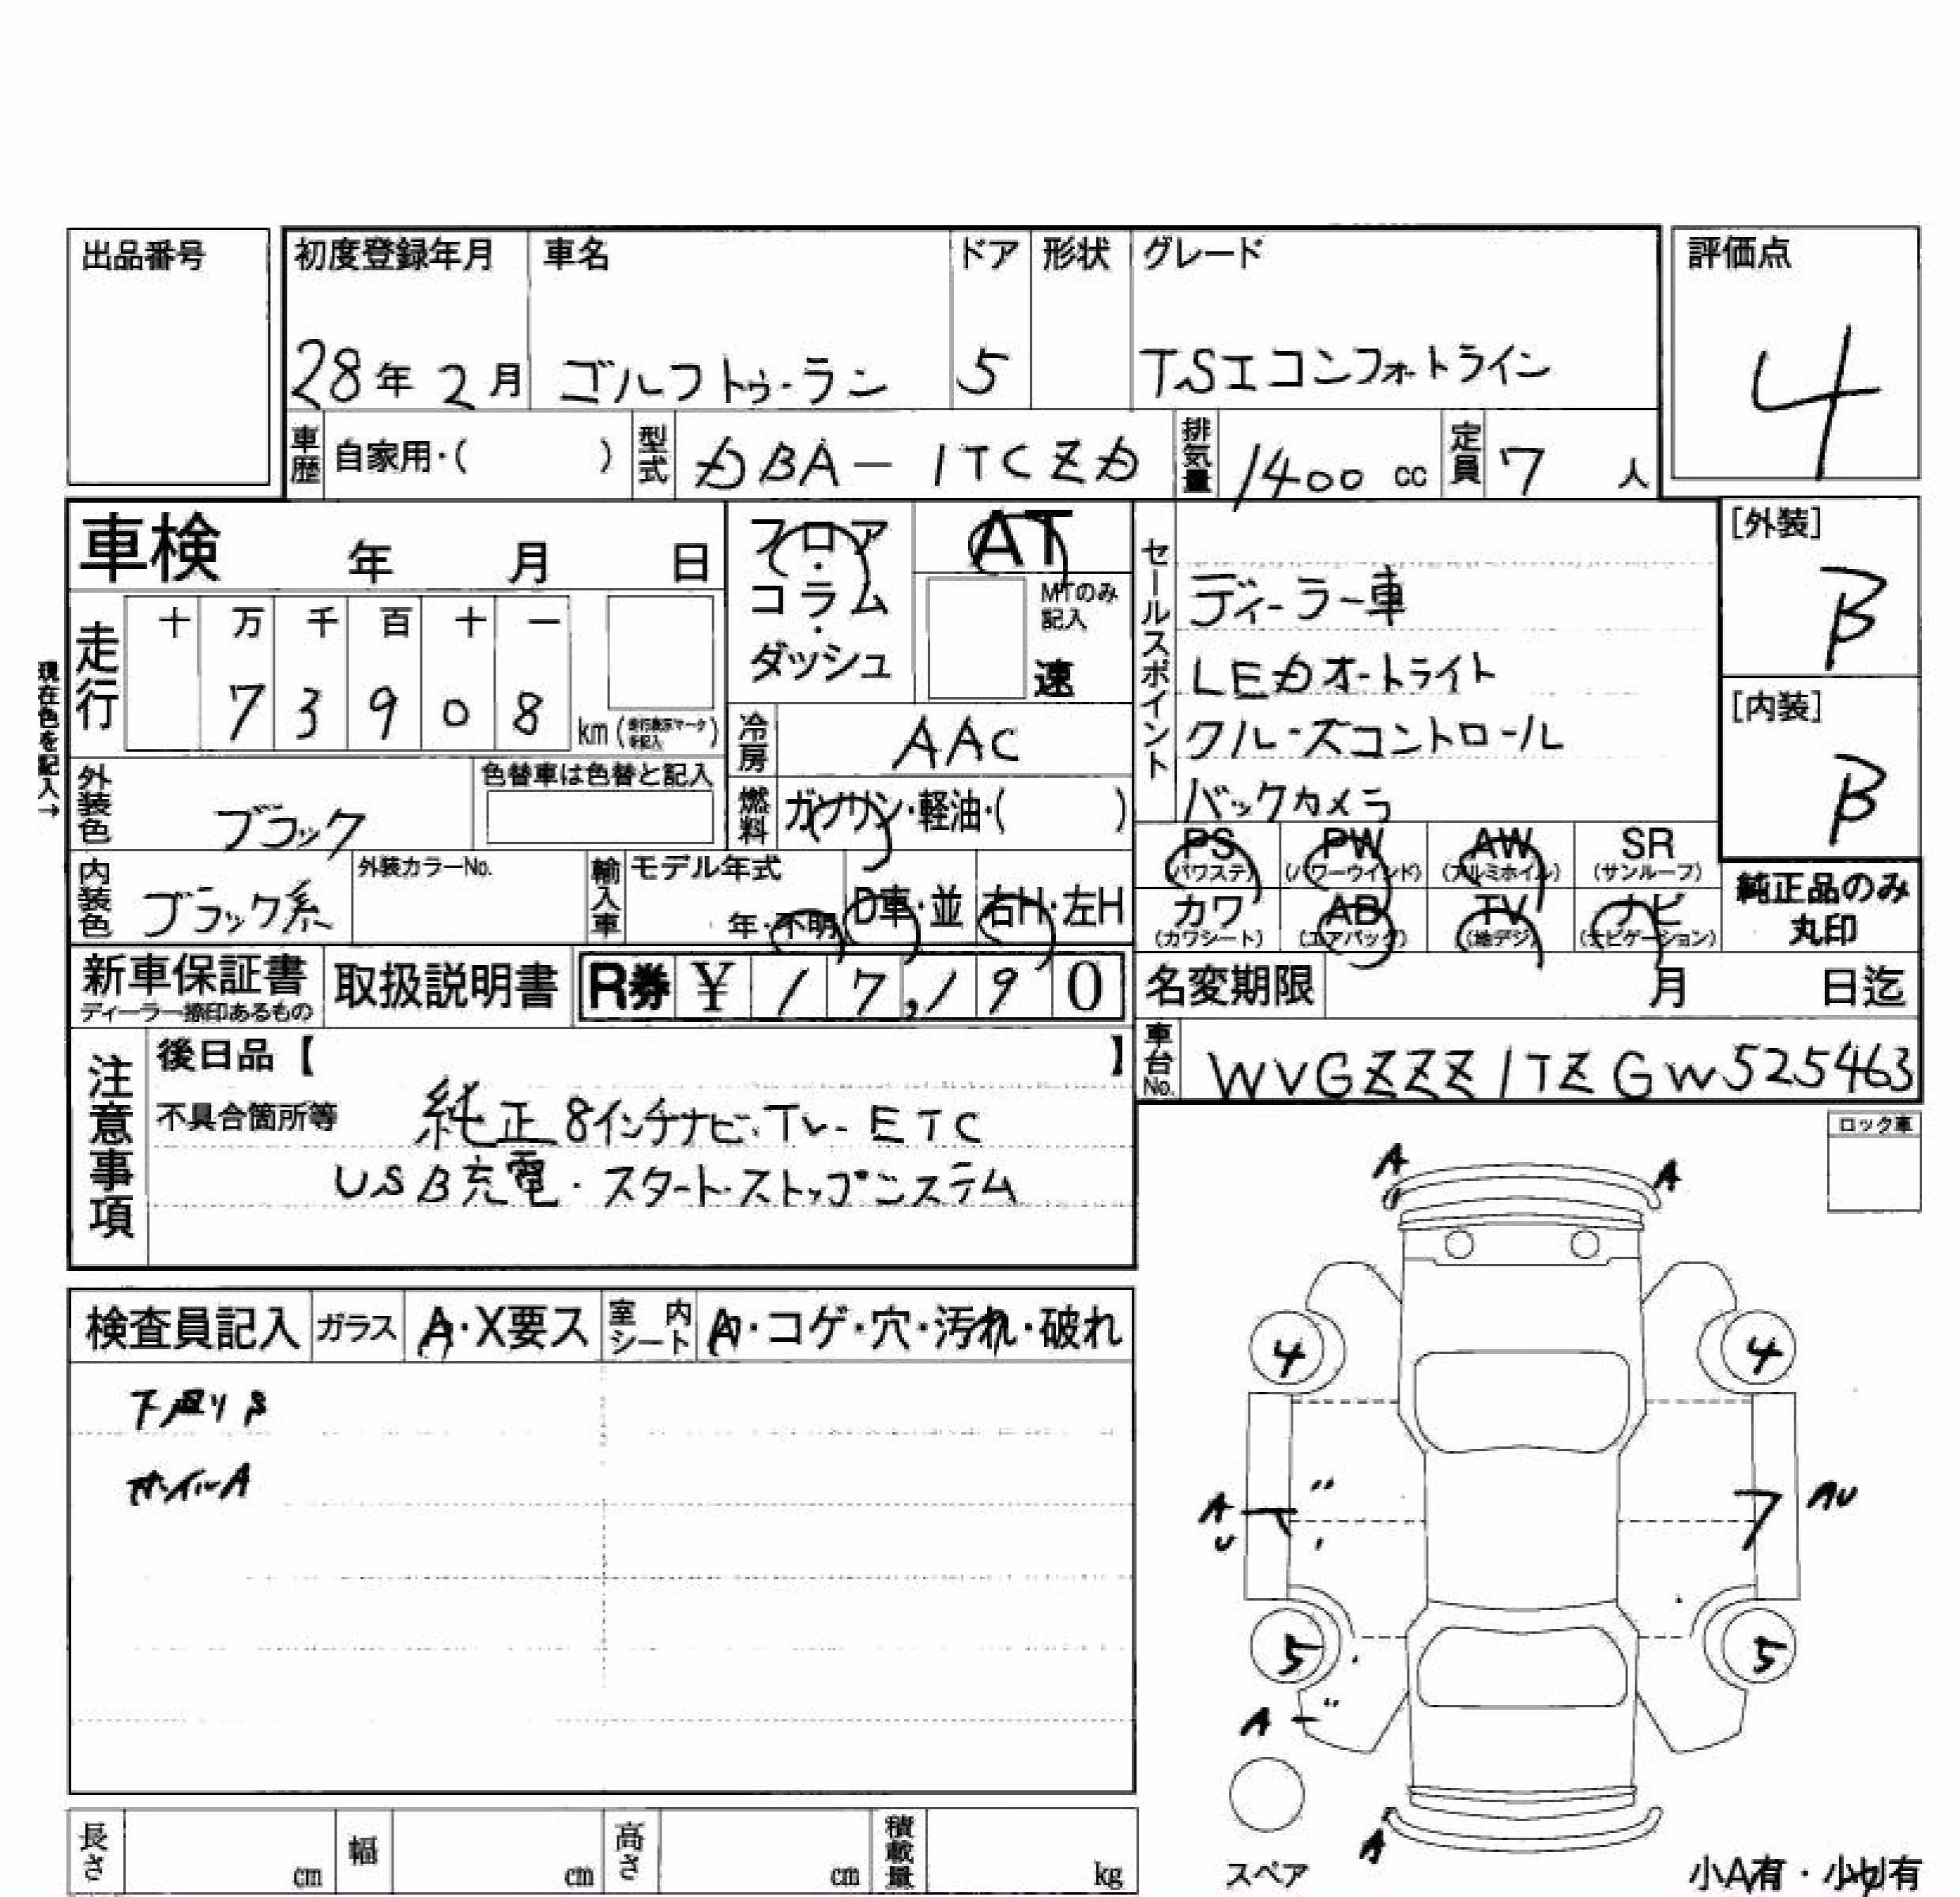 出品番号
初度登録年月 車名 ドア 形状 グレード 評価点
28年2月 ゴルフトゥーラン 5 TSIコンフォートライン 4
車歴 自家用・( ) 型式 DBA-1TCZD 排気量 1400 cc 定員 7 人
車検 年 月 日
フロア・コラム・ダッシュ
AT
MTのみ記入
速
セールスポイント
ディーラー車
LEDオートライト
クルーズコントロール
バックカメラ
[外装]
B
[内装]
B
現在色を記入→
走行 十 万 千 百 十 一
7 3 9 0 8 km
冷房 AAC
外装色 ブラック 色替車は色替と記入
燃料 ガソリン・軽油・( )
内装色 ブラック系 外装カラーNo.
輸入車 モデル年式 年・不明 D車・並 右H・左H
PS (パワステ) PW (パワーウインド) AW (アルミホイル) SR (サンルーフ)
カワ (カワシート) AB (エアバッグ) TV (地デジ) ナビ (ナビゲーション)
純正品のみ丸印
新車保証書 ディーラー捺印あるもの 取扱説明書 R券 ¥ 17,190
名変期限 月 日迄
車台No. WVGZZZ1TZGW525463
注意事項
後日品【 】
不具合箇所等 純正8インチナビ・TV・ETC
USB充電・スタート・ストップシステム
ロック車
検査員記入 ガラス A・X要ス 室内シート A・コゲ・穴・汚れ・破れ
下廻りS
ホイルA
A A
4 4
AU AU
5 5
A
A
スペア
小A有・小U有
長さ cm 幅 cm 高さ cm 積載量 kg